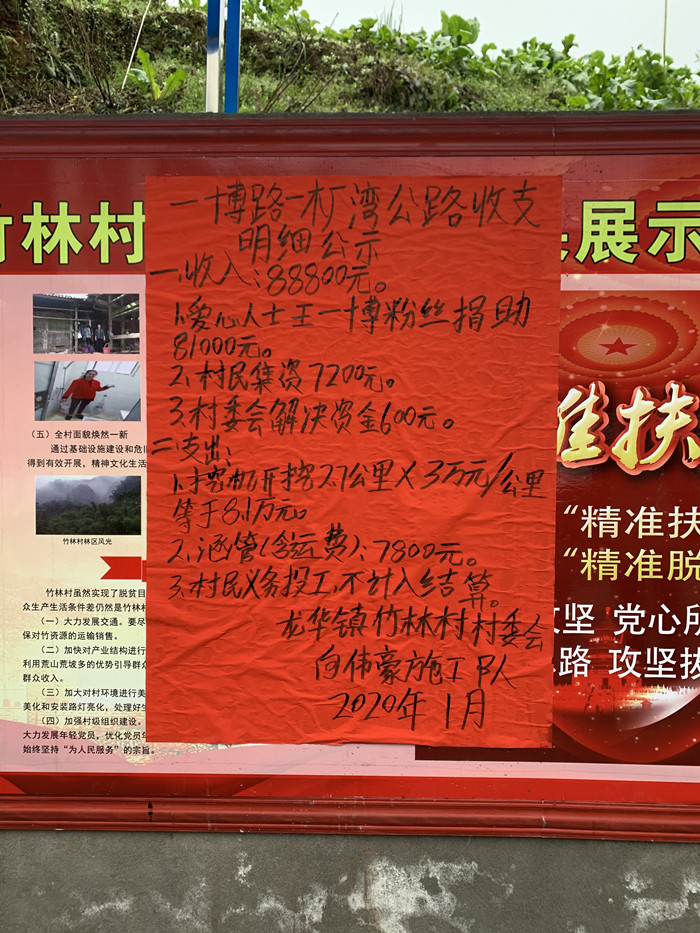 竹林村
展示
一博路一杠湾公路收支
明细公示
一、收入：88800元。
1、爱心人士王一博粉丝捐助
81000元。
2、村民集资7200元。
3、村委会解决资金600元。
二、支出：
1、挖机开挖2.7公里×3万元/公里
等于8.1万元。
2、涵管(含运费)：7800元。
3、村民义务投工，不计入结算。
龙华镇竹林村村委会
向伟豪施工队
2020年1月
（五）全村面貌焕然一新
通过基础设施建设和危
得到有效开展，精神文化生活
竹林村林区风光
竹林村虽然实现了脱贫目
众生产生活条件差仍然是竹林村
（一）大力发展交通。要尽
保对竹资源的运输销售。
（二）加快对产业结构进行
利用荒山荒坡多的优势引导群众
群众收入。
（三）加大对村环境进行美
美化和安装路灯亮化，处理好生
（四）加强村级组织建设。
大力发展年轻党员，优化党员年
始终坚持“为人民服务”的宗旨。
准扶
“精准扶
“精准脱
攻坚 党心所
路 攻坚拔